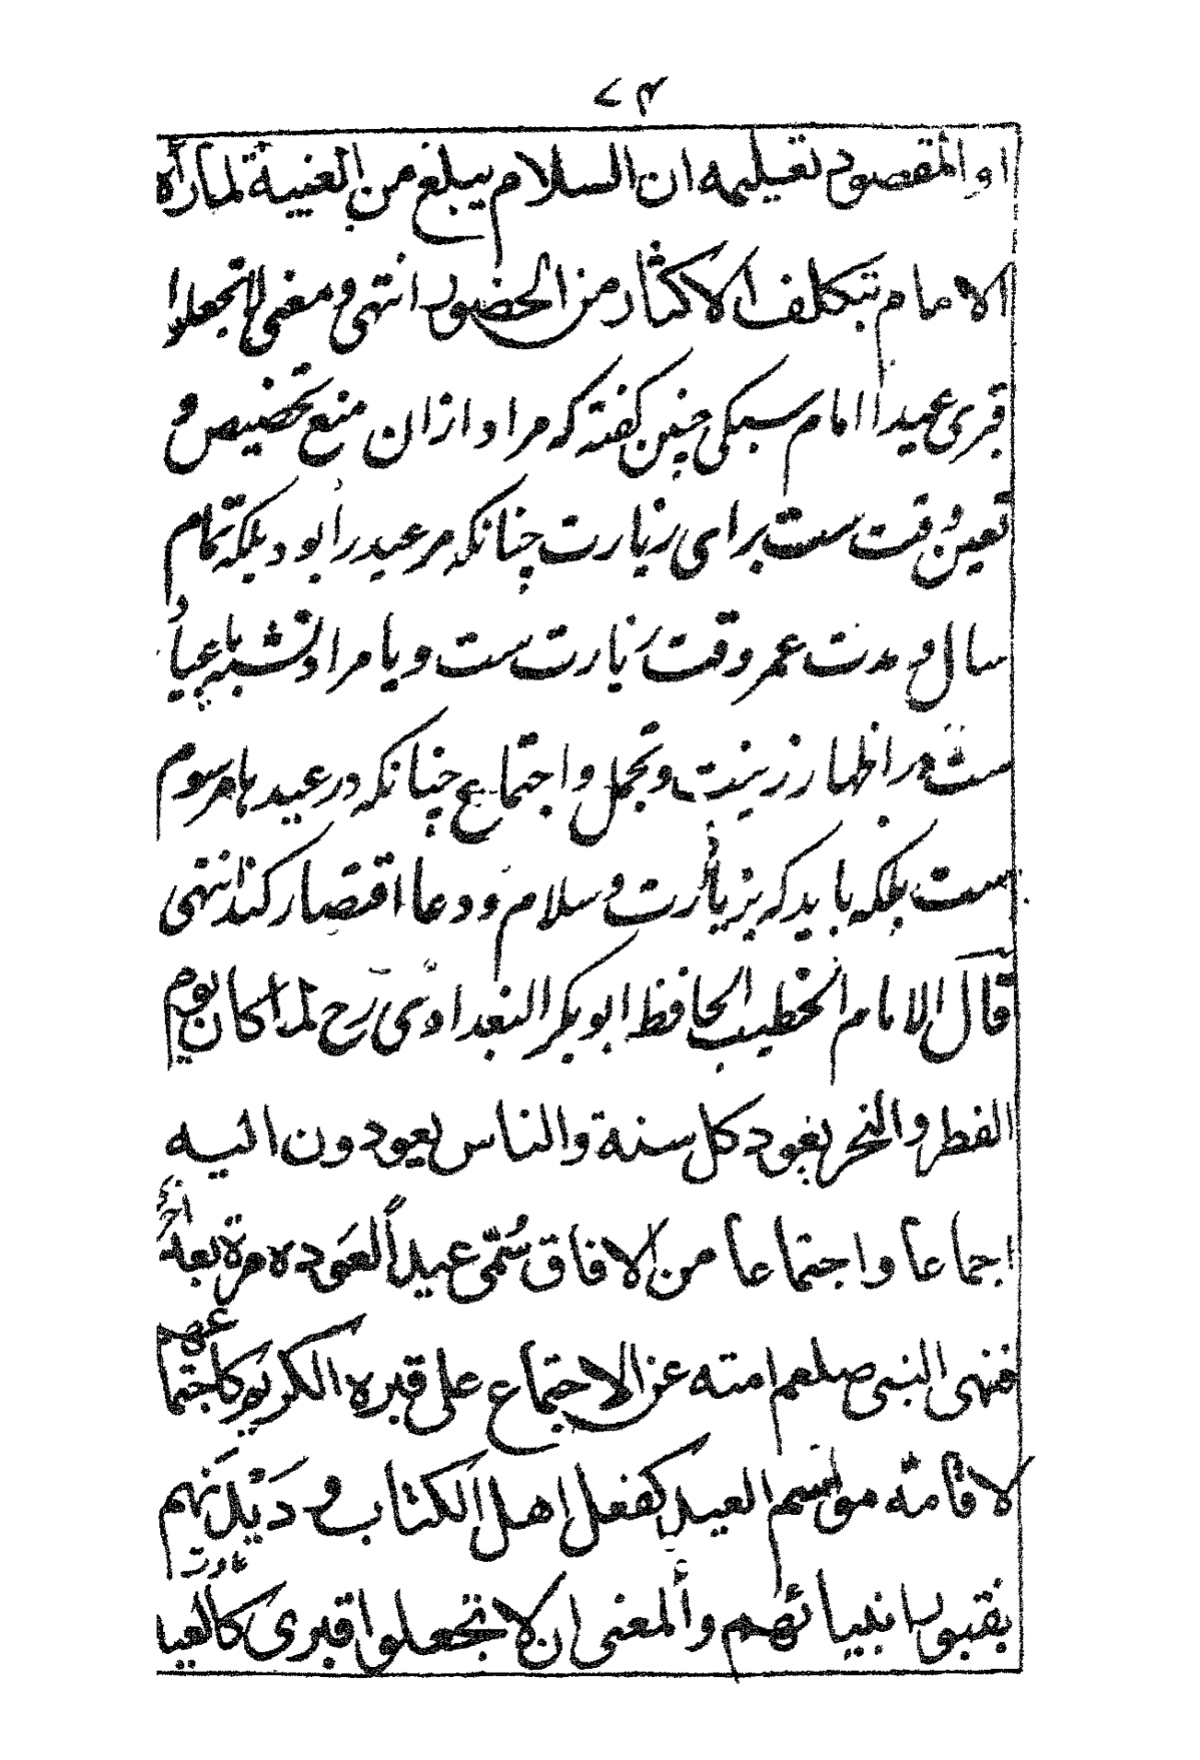 ۷۴
او المقصود تعلیمه ان السلام یبلغ من الغیبة لما رآه
الامام تبکلف الاکثار من الحضور انتهی و معنی لا تجعلوا
قبری عیداً امام سبکی چنین گفته که مراد ازان منع تخصیص و
تعین وقت ست برای زیارت چنانکه مر عید را بود بلکه تمام
سال و مدت عمر وقت زیارت ست و یا مراد تشبیه باعیاد
ست در اظهار زینت و تجمل و اجتماع چنانکه در عیدها مرسوم
ست بلکه باید که بزیارت و سلام و دعا اقتصار کند انتهی
قال الامام الخطیب الحافظ ابوبکر البغداوی رح لما کان یوم
الفطر والنحر یعود کل سنة والناس یعودون الیه
اجماعا واجتماعا من الافاق سُمّی عیداً لعَوده مرة بعد اخری
فنهی النبی صلعم امته عن الاجتماع علی قبره الکریم کاجتماعهم
لاقامة مواسم العید کفعل اهل الکتاب و دَیْدَنهم
بقبور انبیائهم والمعنی ان لا تجعلوا قبری کالعیا
عادت